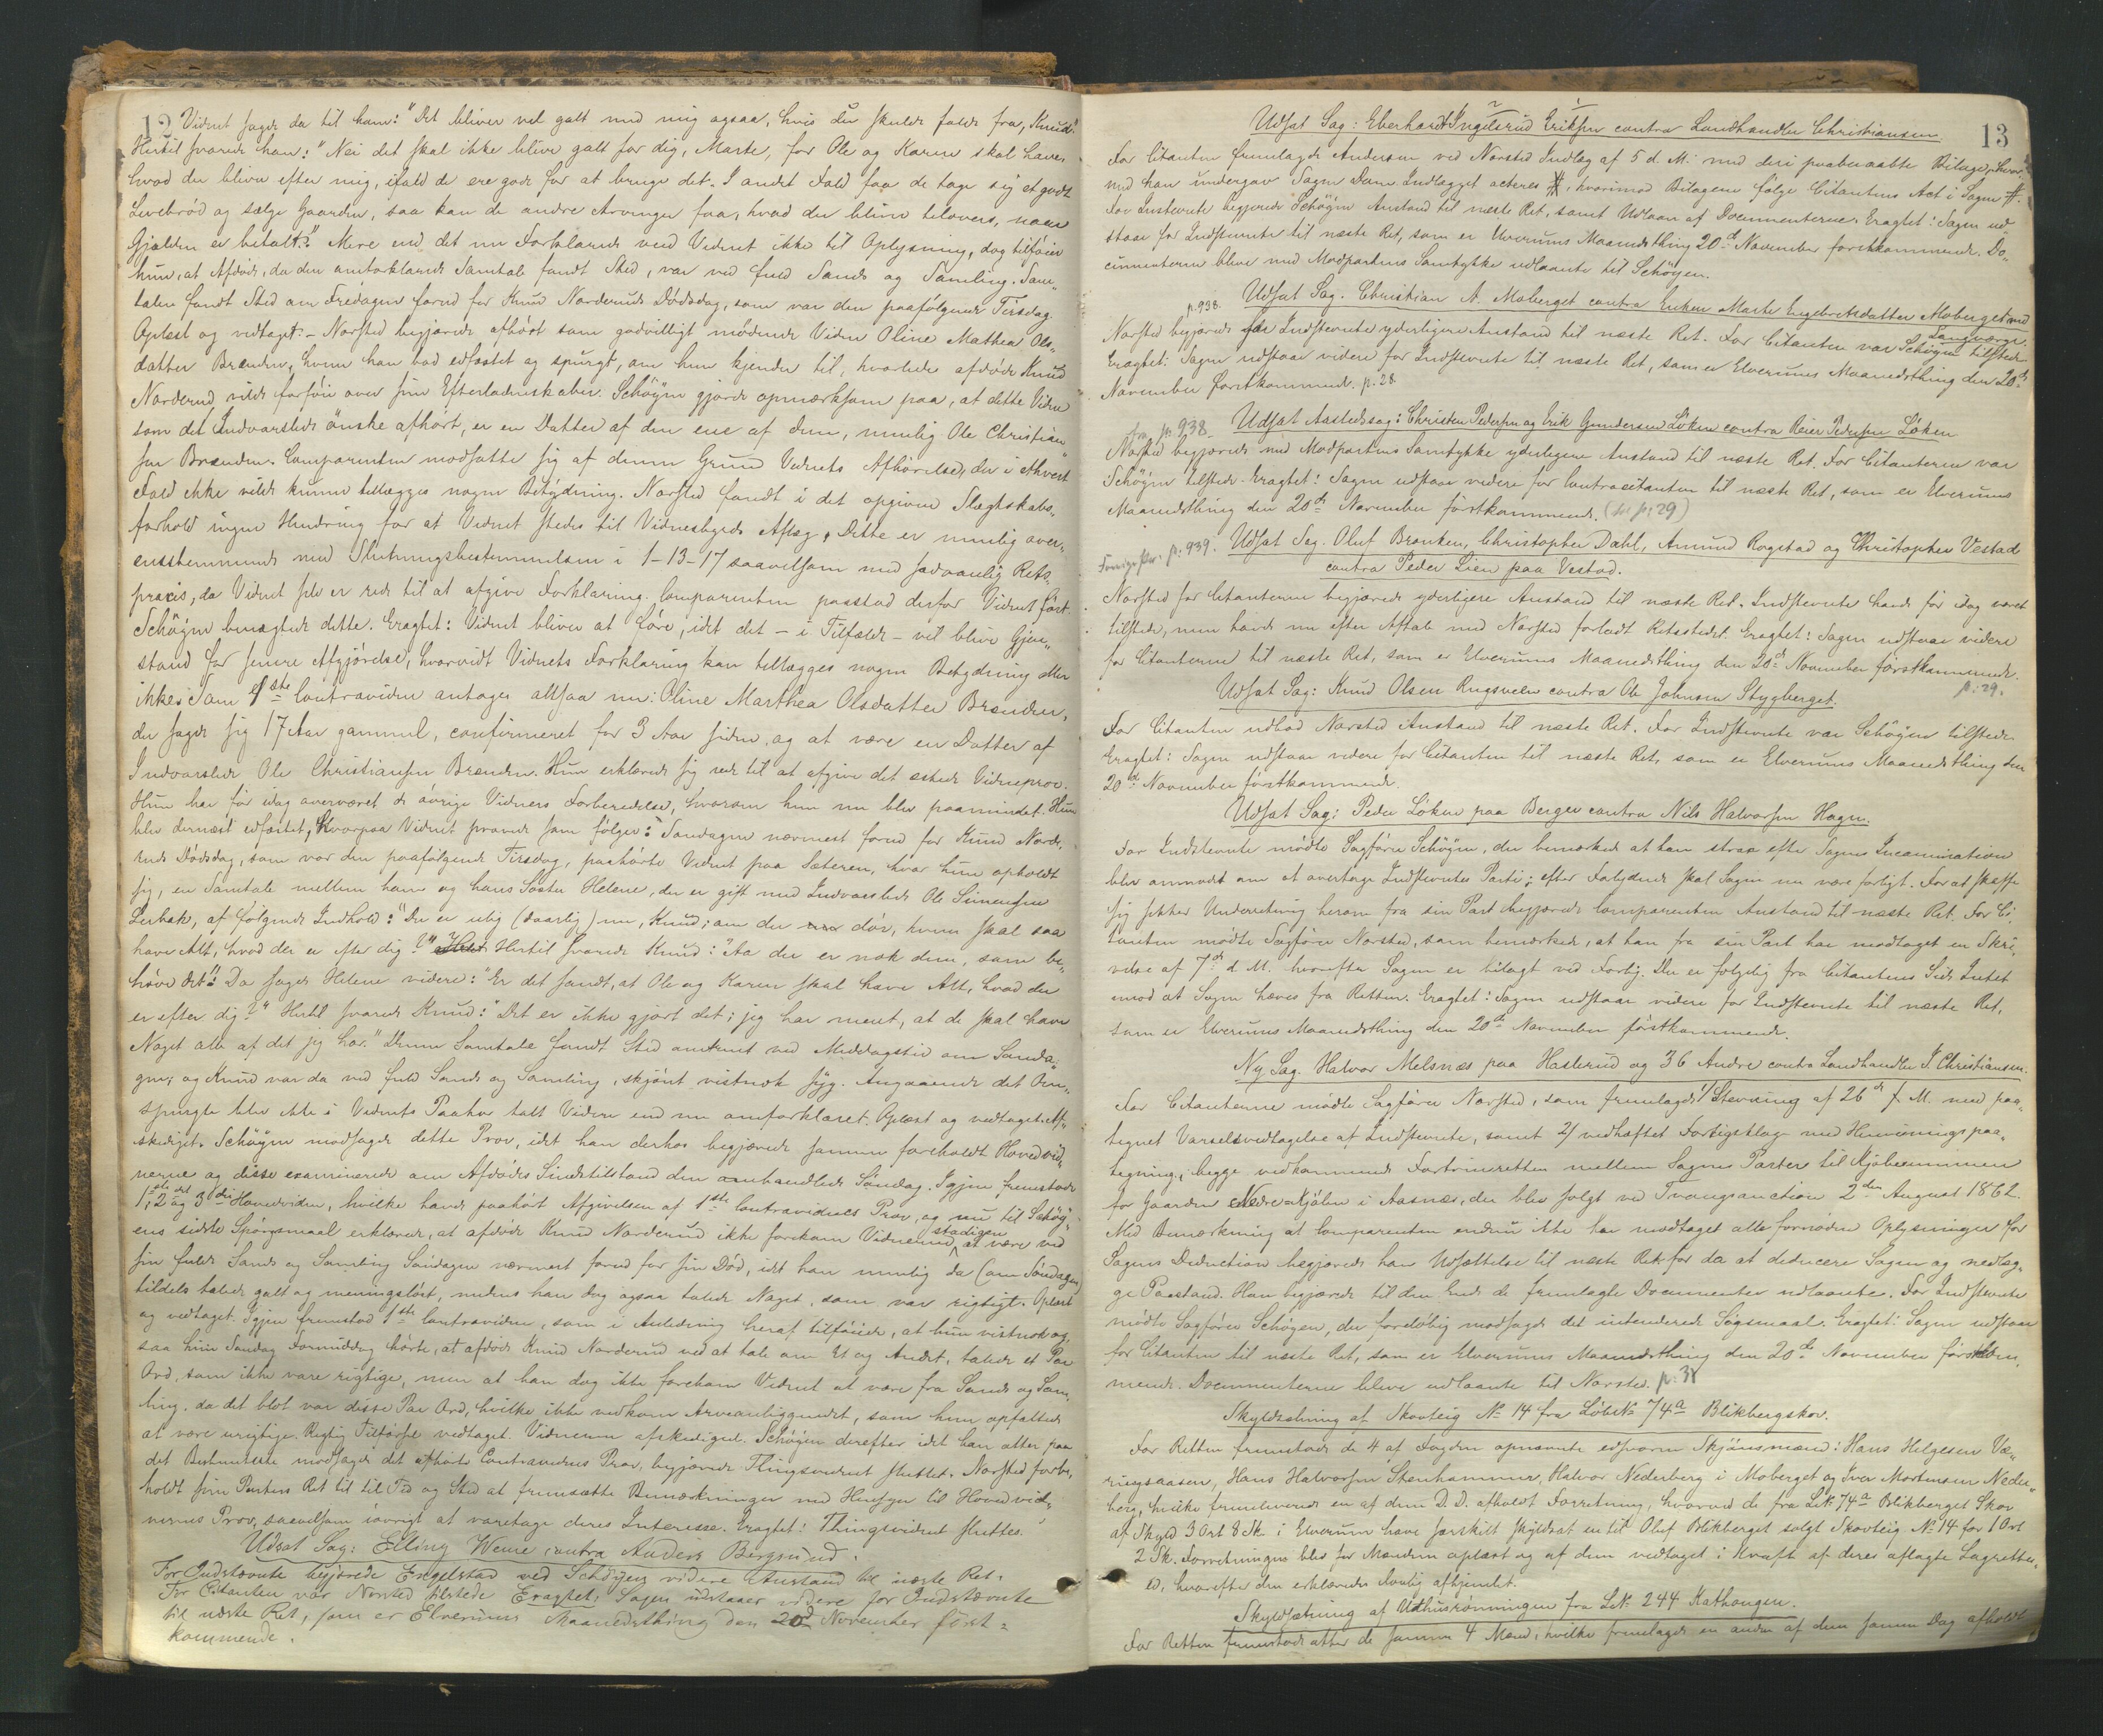 12
Vidnet sagde da til ham: "Det bliver vel galt med mig ogsaa, hvis du skulde falde fra, Knud."
Hertil svarede han: "Nei det skal ikke blive galt for dig, Marte, for Ole og Karen skal have,
hvad der bliver efter mig, ifald de ere gode for at bruge det. I andet Fald faa de tage sig et godt
Levebrød og sælge Gaarden, saa kan de andre Arvinger faa, hvad der bliver tilovers, naar
Gjælden er betalt." Mere end det nu Forklarede veed Vidnet ikke til Oplysning, dog tilføier
hun, at Afdøde, da den omforklarede Samtale fandt Sted, var ved fuld Sands og Samling. Sam„
talen fandt Sted om Fredagen forud for Knud Norderuds Dødsdag, som var den paafølgende Tirsdag.
Oplæst og vedtaget. – Norsted begjærede afhørt som godvilligt mødende Vidne Oline Mathea Ols„
datter Brænden, hvem han bad edfæstet og spurgt, om hun kjender til, hvorledes afdøde Knud
Norderud vilde forføie over sine Efterladenskaber. Schøyen gjorde opmærksom paa, at dette Vidne
som det Indvarslede ønske afhørt, er en Datter af den ene af dem, nemlig Ole Christian„
sen Brænden. Comparenten modsatte sig af denne Grund Vidnets Afhørelse, der i ethvert
Fald ikke vilde kunne tillægges nogen Betydning. Norsted fandt i det opgivne Slægtskabs„
forhold ingen Hindring for at Vidnet stedes til Vidnesbyrds Aflæg. Dette er nemlig over„
ensstemmende med Slutningsbestemmelsen i 1-13-17 saavelsom med sædvanlig Rets„
praxis, da Vidnet selv er rede til at afgive Forklaring. Comparenten paastod derfor Vidnet ført.
Schøyen benægtede dette. Eragtet: Vidnet bliver at føre, idet det – i Tilfælde – vil blive Gjen„
stand for senere Afgjørelse, hvorvidt Vidnets Forklaring kan tillægges nogen Betydning eller
ikke. Som 1ste Contravidne antages altsaa nu: Oline Marthea Olsdatter Brænden,
der sagde sig 17 Aar gammel, confirmeret for 3 Aar siden, og at være en Datter af
Indvarslede Ole Christiansen Brænden. Hun erklærede sig rede til at afgive det æskede Vidneprov.
Hun har før idag overværet de øvrige Vidners Forberedelse, hvorom hun nu blev paamindet. Hun
blev dernæst edfæstet, hvorpaa Vidnet provede som følger: Søndagen nærmest forud for Knud Norde„
ruds Dødsdag, som var den paafølgende Tirsdag, paahørte Vidnet paa Sæteren, hvor hun opholdt
sig, en Samtale mellem ham og hans Søster Helene, der er gift med Indvarslede Ole Simensen
Lerbak, af følgende Indhold: "Du er ulig (daarlig) nu, Knud; om du nu dør, hvem skal saa
have Alt, hvad der er efter dig?" Hertil svarede Knud: "Aa der er nok dem, som be„
høve det." Da sagde Helene videre: "Er det sandt, at Ole og Karen skal have Alt, hvad der
er efter dig?" Hertil svarede Knud: "Det er ikke gjort det; jeg har ment, at de skal have
Noget alle af det jeg har." Denne Samtale fandt Sted omtrent ved Middagstid om Sønda„
gen; og Knud var da ved fuld Sands og Samling, skjønt vistnok syg. Angaaende det Om„
spurgte blev ikke i Vidnets Paahør talt Videre end nu omforklaret. Oplæst og vedtaget. Af„
skediget. Schøyen modsagde dette Prov, idet han derhos begjærede samme foreholdt Hovedvid„
nerne og disse examinerede om Afdødes Sindstilstand den omhandlede Søndag. Igjen fremstod
1ste, 2det og 3die Hovedvidne, hvilke havde paahørt Afgivelsen af 1ste Contravidnes Prov, og nu til Schøy„
ens sidste Spørgsmaal erklærede, at afdøde Knud Norderud ikke forekom Vidnerne stadigen at være ved
sin fulde Sands og Samling Søndagen nærmest forud for sin Død, idet han nemlig da (om Søndagen)
tildels talede galt og meningsløst, medens han dog ogsaa talede Noget, som var rigtigt. Oplæst
og vedtaget. Igjen fremstod 1ste Contravidne, som i Anledning heraf tilføiede, at hun vistnok og„
saa hin Søndag Formiddag hørte, at afdøde Knud Norderud ved at tale om Et og Andet, talede et Par
Ord, som ikke vare rigtige, men at han dog ikke forekom Vidnet at være fra Sands og Sam„
ling, da det blot var disse Par Ord, hvilke ikke vedkom Arveanliggendet, som hun opfattede
at være urigtige. Rigtig Tilførsel vedtaget. Vidnerne afskediget. Schøyen derefter idet han atter paa
det Bestemteste modsagde det afhørte Contravidnes Prov, begjærede Thingsvidnet sluttet. Norsted forbe„
holdt sine Parters Ret til til Tid og Sted at fremsætte Bemærkninger med Hensyn til Hovedvid„
nernes Prov, saavelsom iøvrigt at varetage deres Interesse. Eragtet: Thingsvidnet sluttes.
Udsat Sag: Elling Weme contra Anders Bergsund.
For Indstævnte begjærede Engelstad ved Schöyen videre Anstand til næste Ret.
For Citanten var Norsted tilstede Eragtet: Sagen udstaaer videre for Indstævnte
til næste Ret, som er Elverums Maanedsthing den 20de November först=
kommende.
13
Udsat Sag: Eberhardt Ingelsrud Eriksen contra Landhandler Christiansen.
For Citanten fremlagde Andersen ved Norsted Indlæg af 5 d. M. med deri paaberaabte Bilage, hvor„
med han undergav Sagen Dom. Indlægget acteres #, hvorimod Bilagene følge Citantens Act i Sagen #.
For Indstevnte begjerede Schöyen Anstand til næste Ret, samt Udlaan af Documenterne. Eragtet: Sagen ud„
staar for Indstevnte til næste Ret, som er Elverums Maanedsthing 20de November førstkommende. Do„
cumenterne bleve med Modpartens Samtykke udlaante til Schöyen.
p. 938. Udsat Sag. Christian A. Moberget contra Enken Marte Engebretsdatter Moberget med
Laugværge.
Norsted begjærede for Indstevnte yderligere Anstand til næste Ret. For Citanten var Schöyen tilstede.
Eragtet: Sagen udstaar videre for Indstevnte til næste Ret, som er Elverums Maanedsthing den 20de
November førstkommende. p. 28
fra p. 938. Udsat Aastedssag: Christen Pedersen og Erik Gundersen Löken contra Reier Pedersen Löken
Norsted begjærede med Modpartens Samtykke yderligere Anstand til næste Ret. For Citanterne var
Schöyen tilstede. Eragtet: Sagen udstaar videre for Contracitanten til næste Ret, som er Elverums
Maanedsthing den 20de November førstkommende. (se p: 29)
p: 939. Udsat Sag. Oluf Bronken, Christopher Dahl, Amund Rogstad og Christopher Vestad
contra Peder Lien paa Vestad.
Norsted for Citanterne begjærede yderligere Anstand til næste Ret. Indstevnte havde før idag været
tilstede, men havde nu efter Aftale med Norsted forladt Retsstedet. Eragtet: Sagen udstaar videre
for Citanterne til næste Ret, som er Elverums Maanedsthing den 20de November førstkommende.
p: 29.
Udsat Sag: Knud Olsen Rugsveen contra Ole Johnsen Stygberget.
For Citanten udbad Norsted Anstand til næste Ret. For Indstevnte var Schöyen tilstede.
Eragtet: Sagen udstaar videre for Citanten til næste Ret, som er Elverums Maanedsthing den
20de November førstkommende.
Udsat Sag: Peder Löken paa Berger contra Nils Halvorsen Hagen.
For Indstevnte mødte Sagfører Schöyen, der bemærkede at han strax efter Sagens Incamination
blev anmodet om at overtage Indstevntes Parti; efter Forlydende skal Sagen nu være forligt. For at skaffe
sig sikker Underretning herom fra sin Part begjærede Comparenten Anstand til næste Ret. For Ci„
tanten mødte Sagfører Norsted, som bemærkede, at han fra sin Part har modtaget en Skri„
velse af 7de d. M. hvorefter Sagen er bilagt ved Forlig. Der er følgelig fra Citantens Side Intet
imod at Sagen hæves fra Retten. Eragtet: Sagen udstaar videre for Indstevnte til næste Ret,
som er Elverums Maanedsthing den 20de November førstkommende.
Ny Sag. Halvor Melsnæs paa Haslerud og 36 Andre contra Landhandler J. Christiansen.
For Citanterne mødte Sagfører Norsted, som fremlagde 1/ Stevning af 26de f. M. med paa„
tegnet Varselsvedtagelse af Indstevnte, samt 2/ vedhæftet Forligsklage med Henvisningspaa„
tegning, begge vedkommende Fortrinsretten mellem Sagens Parter til Kjøbesummen
for Gaarden Nedre Kjölen i Aasnæs, der blev solgt ved Tvangsauction 2den August 1862.
Med Bemærkning at Comparenten endnu ikke har modtaget alle fornødne Oplysninger for
Sagens Deduction begjærede han Udsættelse til næste Ret for da at deducere Sagen og nedlæg„
ge Paastand. Han begjærede til den Ende de fremlagte Documenter udlaante. For Indstevnte
mødte Sagfører Schöyen, der foreløbig modsagde det intenderede Søgsmaal. Eragtet: Sagen udstaar
for Citanten til næste Ret, som er Elverums Maanedsthing den 20de November førstkom„
mende. Documenterne bleve udlaante til Norsted. p: 31
Skyldsætning af Skovteig No 14 fra LøbeNo 74a Blikbergskov.
For Retten fremstode de 4 af Fogden opnævnte edsvorne Skjønsmænd: Hans Helgesen Væ„
ringsaasen, Hans Halvorsen Stenhammer, Halvor Nederberg i Moberget og Iver Mortensen Neder„
berg, hvilke fremleverede en af dem D. D. afholdt Forretning, hvorved de fra LNo 74a Blikberget Skov
af Skyld 3 Ort 8 Sk. i Elverum have særskilt skyldsat en til Oluf Blikberget solgt Skovteig No 14 for 1 Ort
2 Sk. Forretningen blev for Mændene oplæst og af dem vedtaget i Kraft af deres aflagte Lagrettes„
ed, hvorefter den erklæredes lovlig afhjemlet.
Skyldsætning af Vidhusrönningen fra LNo 244 Kathaugen.
For Retten fremstode atter de samme 4 Mænd, hvilke fremlagde en anden af dem samme Dag afholdt